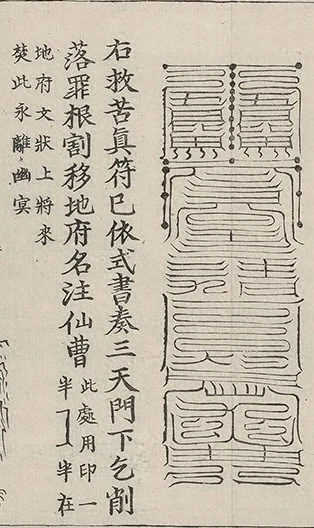 右救苦眞符巳依式書奏三天門下乞削
落罪根割移地府名注仙曹
此處用印一
半半在
地府文狀上將來
焚此永離幽冥